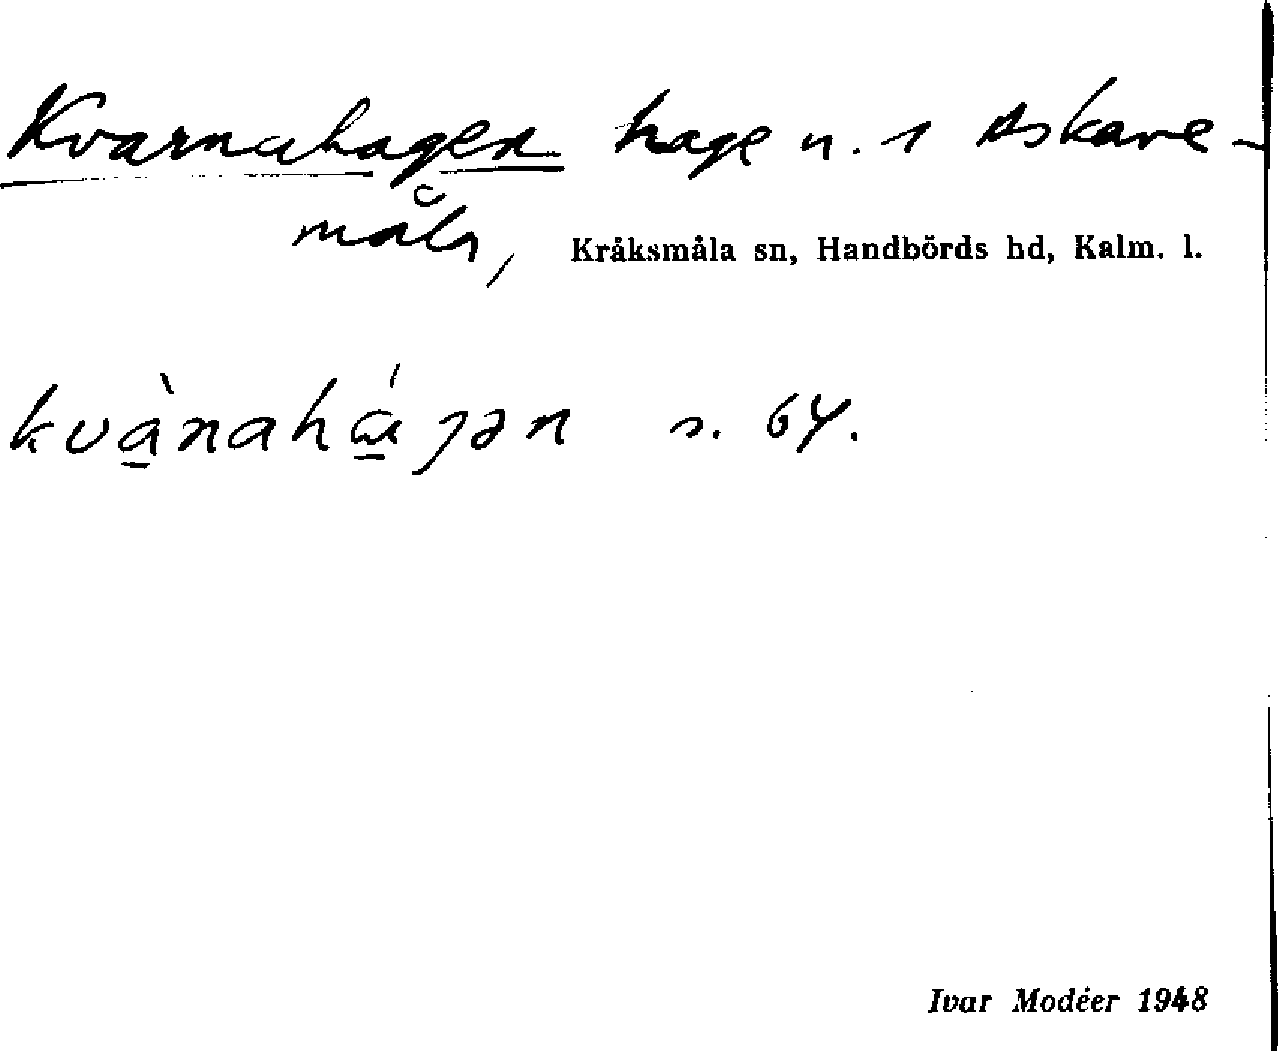 Kvarnahagen hage n. 1 Askare-
måla, Kråksmåla sn, Handbörds hd, Kalm. l.
kvànahágən s. 64.
Ivar Modéer 1948